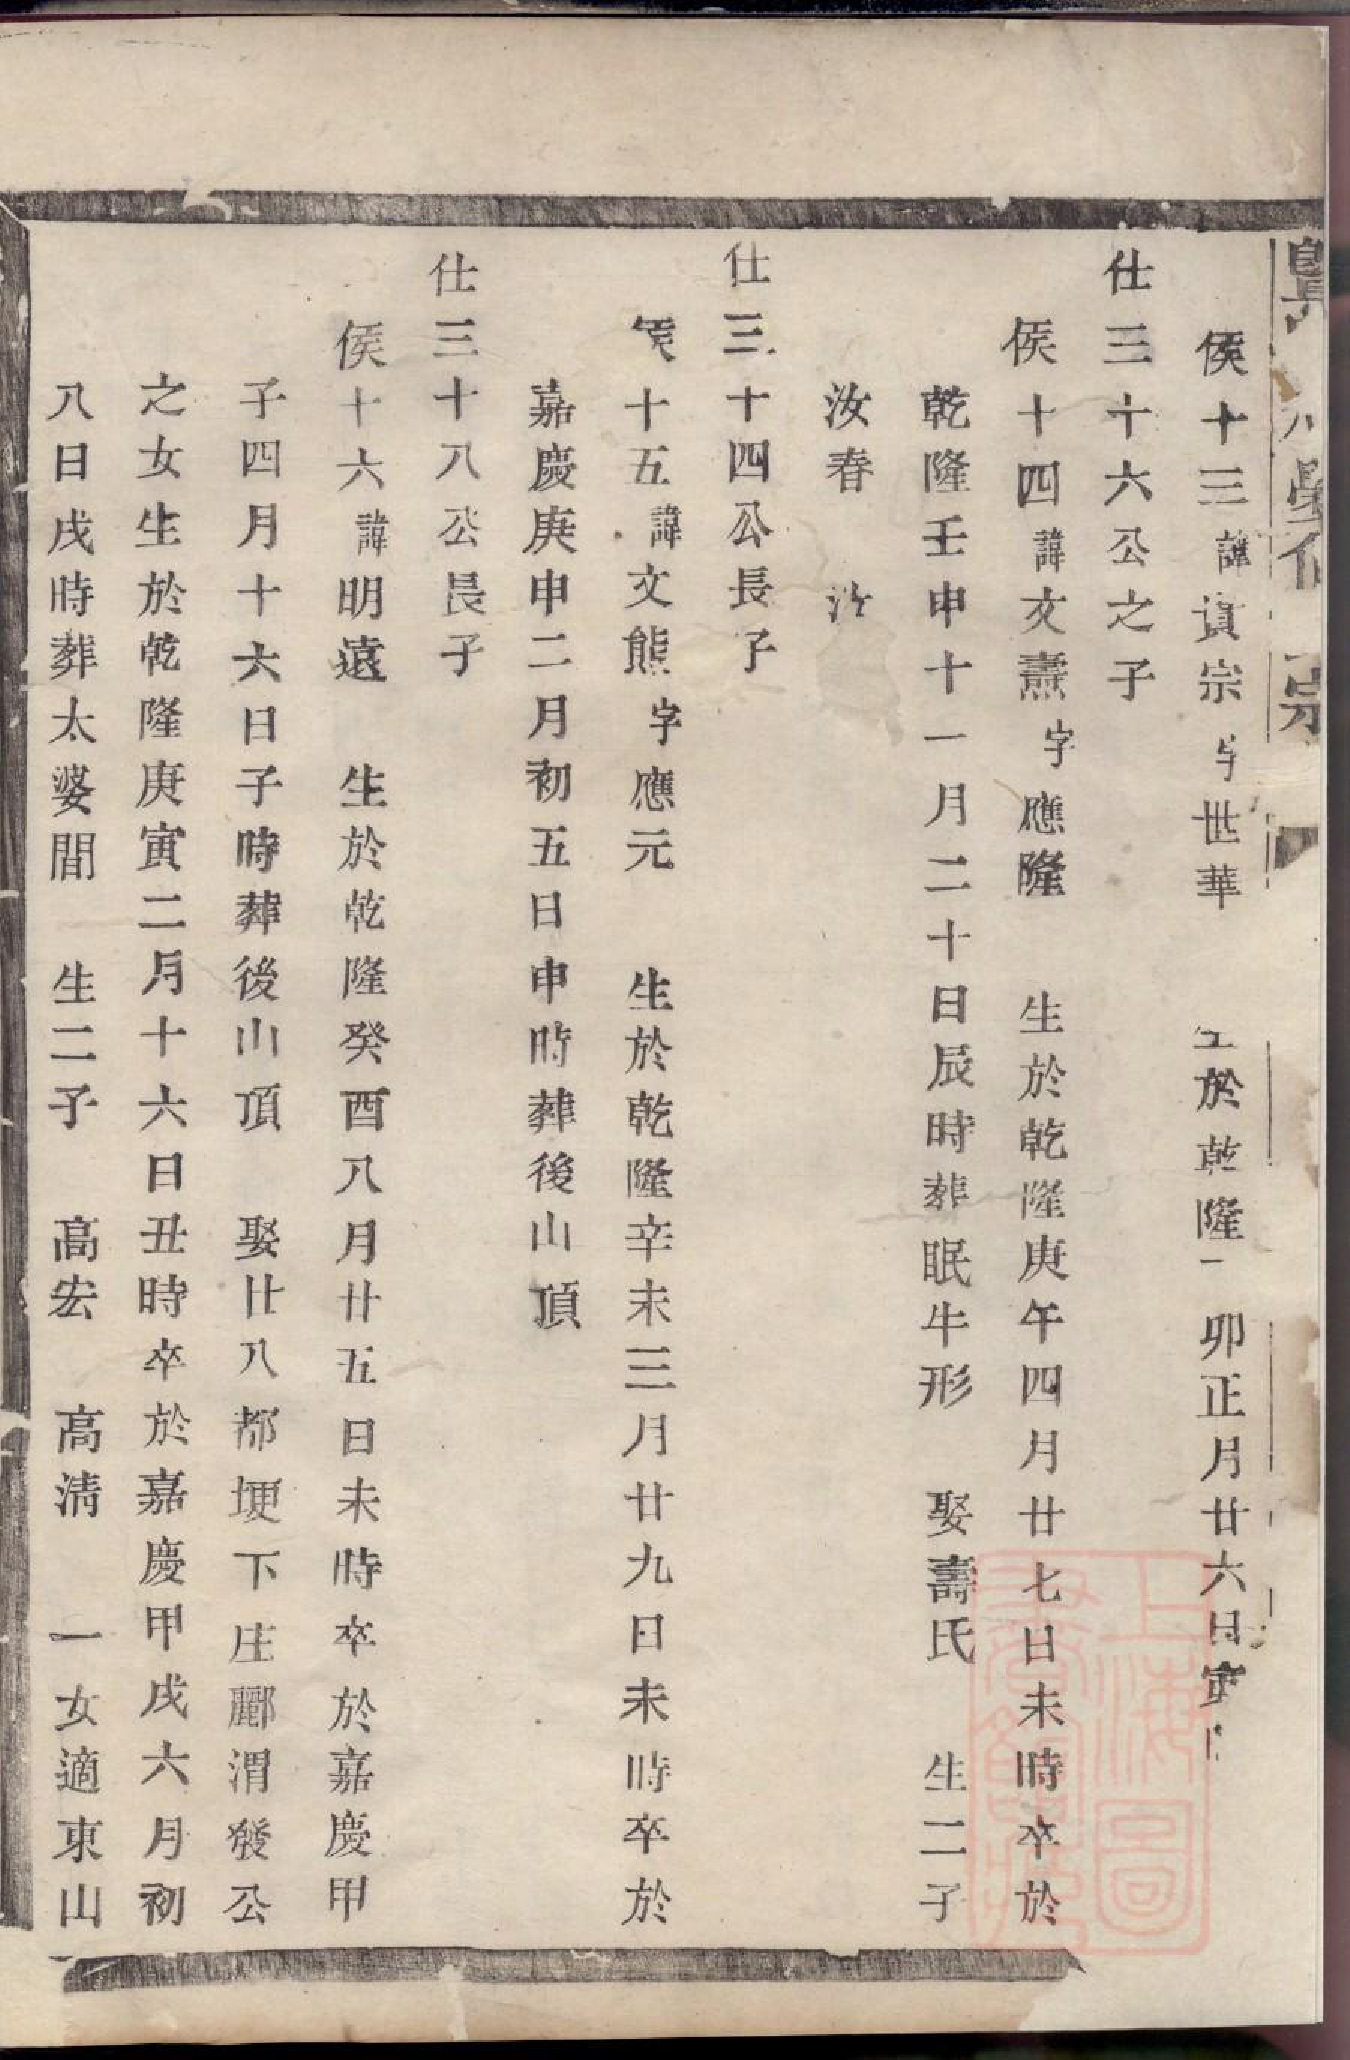 侯十三諱資宗字世華 生於乾隆 卯正月廿六日寅
仕三十六公之子
侯十四諱文燾字應隆 生於乾隆庚午四月廿七日未時卒於
乾隆壬申十一月二十日辰時葬眠牛形 娶壽氏 生二子
汝春 汝
仕三十四公長子
侯十五諱文熊字應元 生於乾隆辛未三月廿九日未時卒於
嘉慶庚申二月初五日申時葬後山頂
仕三十八公長子
侯十六諱明遠 生於乾隆癸酉八月廿五日未時卒於嘉慶甲
子四月十六日子時葬後山頂 娶廿八都埂下庄酈渭發公
之女生於乾隆庚寅二月十六日丑時卒於嘉慶甲戌六月初
八日戌時葬太婆間 生二子 高宏 高淸 一女適東山
上海圖書館藏